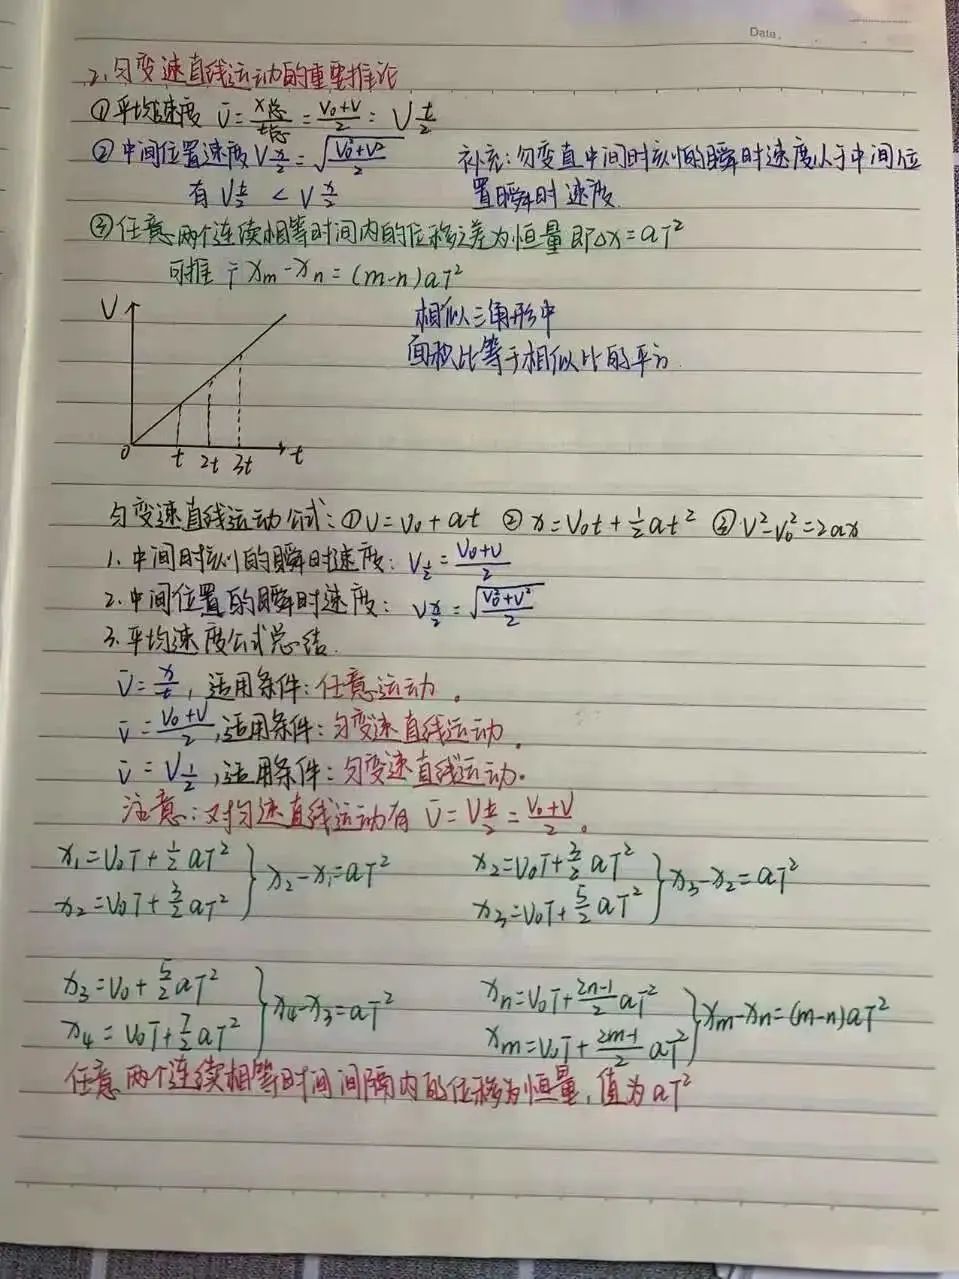 Data.
2. 匀变速直线运动的重要推论
①平均速度 v̄ = x总/t总 = (v₀+v)/2 = V t/2
②中间位置速度 V x/2 = √((v₀²+v²)/2) 补充:匀变直中间时刻的瞬时速度小于中间位
有 V t/2 < V x/2 置瞬时速度.
③任意两个连续相等时间内的位移之差为恒量即Δx=aT²
可推广 xm-xn=(m-n)aT²
V 相似三角形中
面积比等于相似比的平方.
0 t 2t 3t t
匀变速直线运动公式:①v=v₀+at ②x=v₀t+½at² ③v²-v₀²=2ax
1.中间时刻的瞬时速度: V ½ = (v₀+v)/2
2.中间位置的瞬时速度: V x/2 = √((v₀²+v²)/2)
3.平均速度公式总结.
v̄ = x/t, 适用条件:任意运动.
v̄ = (v₀+v)/2,适用条件:匀变速直线运动.
v̄ = V ½,适用条件:匀变速直线运动.
注意:对匀速直线运动有 v̄ = V t/2 = (v₀+v)/2.
x₁=v₀T+½aT² } x₂-x₁=aT² x₂=v₀T+3/2 aT² } x₃-x₂=aT²
x₂=v₀T+3/2 aT² x₃=v₀T+5/2 aT²
x₃=v₀+5/2 aT² } x₄-x₃=aT² xn=v₀T+(2n-1)/2 aT² } xm-xn=(m-n)aT²
x₄=v₀T+7/2 aT² xm=v₀T+(2m-1)/2 aT²
任意两个连续相等时间间隔内的位移为恒量,值为aT²